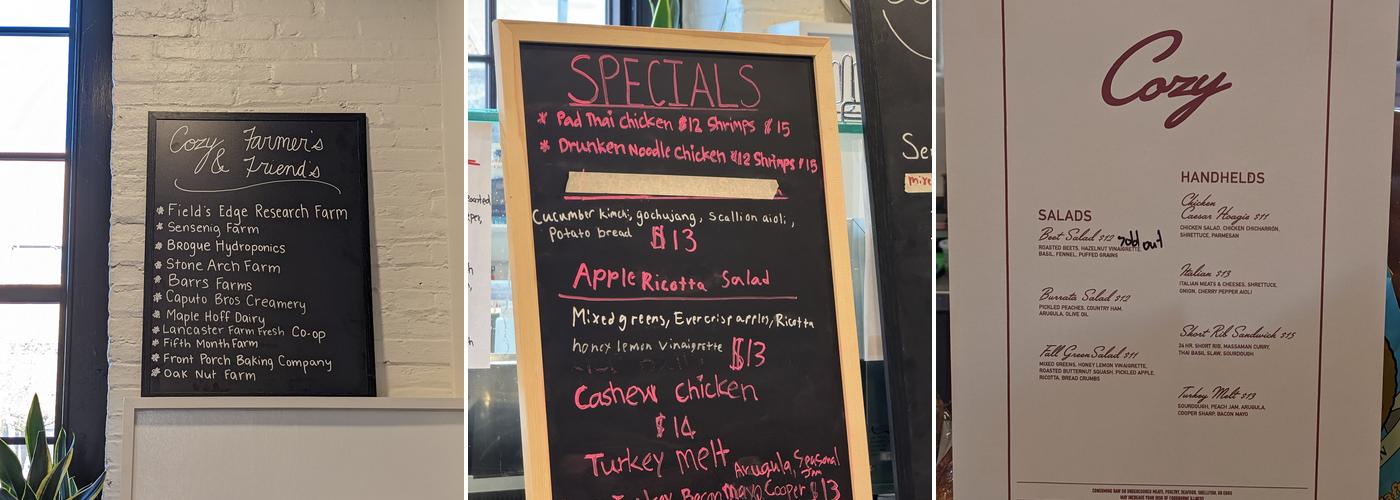 Cozy Farmer's
& Friend's
* Field's Edge Research Farm
* Sensenig Farm
* Brogue Hydroponics
* Stone Arch Farm
* Barrs Farms
* Caputo Bros Creamery
* Maple Hoff Dairy
* Lancaster Farm Fresh Co-op
* Fifth Month Farm
* Front Porch Baking Company
* Oak Nut Farm
SPECIALS
* Pad Thai chicken $12 Shrimps $15
* Drunken Noodle Chicken $12 Shrimps $15
Cucumber kimchi, gochujang, Scallion aioli,
Potato bread $13
Apple Ricotta Salad
Mixed greens, Evercrisp apples, Ricotta
honey lemon Vinaigrette $13
Cashew chicken
$14
Turkey melt Arugula, Seasonal
Jam
Turkey Bacon Mayo Cooper $13
Cozy
SALADS
Beet Salad $12 sold out
ROASTED BEETS, HAZELNUT VINAIGRETTE,
BASIL, FENNEL, PUFFED GRAINS
Burrata Salad $12
PICKLED PEACHES, COUNTRY HAM,
ARUGULA, OLIVE OIL
Fall Green Salad $11
MIXED GREENS, HONEY LEMON VINAIGRETTE,
ROASTED BUTTERNUT SQUASH, PICKLED APPLE,
RICOTTA, BREAD CRUMBS
HANDHELDS
Chicken
Caesar Hoagie $11
CHICKEN SALAD, CHICKEN CHICHARRÓN,
SHRETTUCE, PARMESAN
Italian $13
ITALIAN MEATS & CHEESES, SHRETTUCE,
ONION, CHERRY PEPPER AIOLI
Short Rib Sandwich $15
24 HR. SHORT RIB, MASSAMAN CURRY,
THAI BASIL SLAW, SOURDOUGH
Turkey Melt $13
SOURDOUGH, PEACH JAM, ARUGULA,
COOPER SHARP, BACON MAYO
CONSUMING RAW OR UNDERCOOKED MEATS, POULTRY, SEAFOOD, SHELLFISH, OR EGGS
MAY INCREASE YOUR RISK OF FOODBORNE ILLNESS